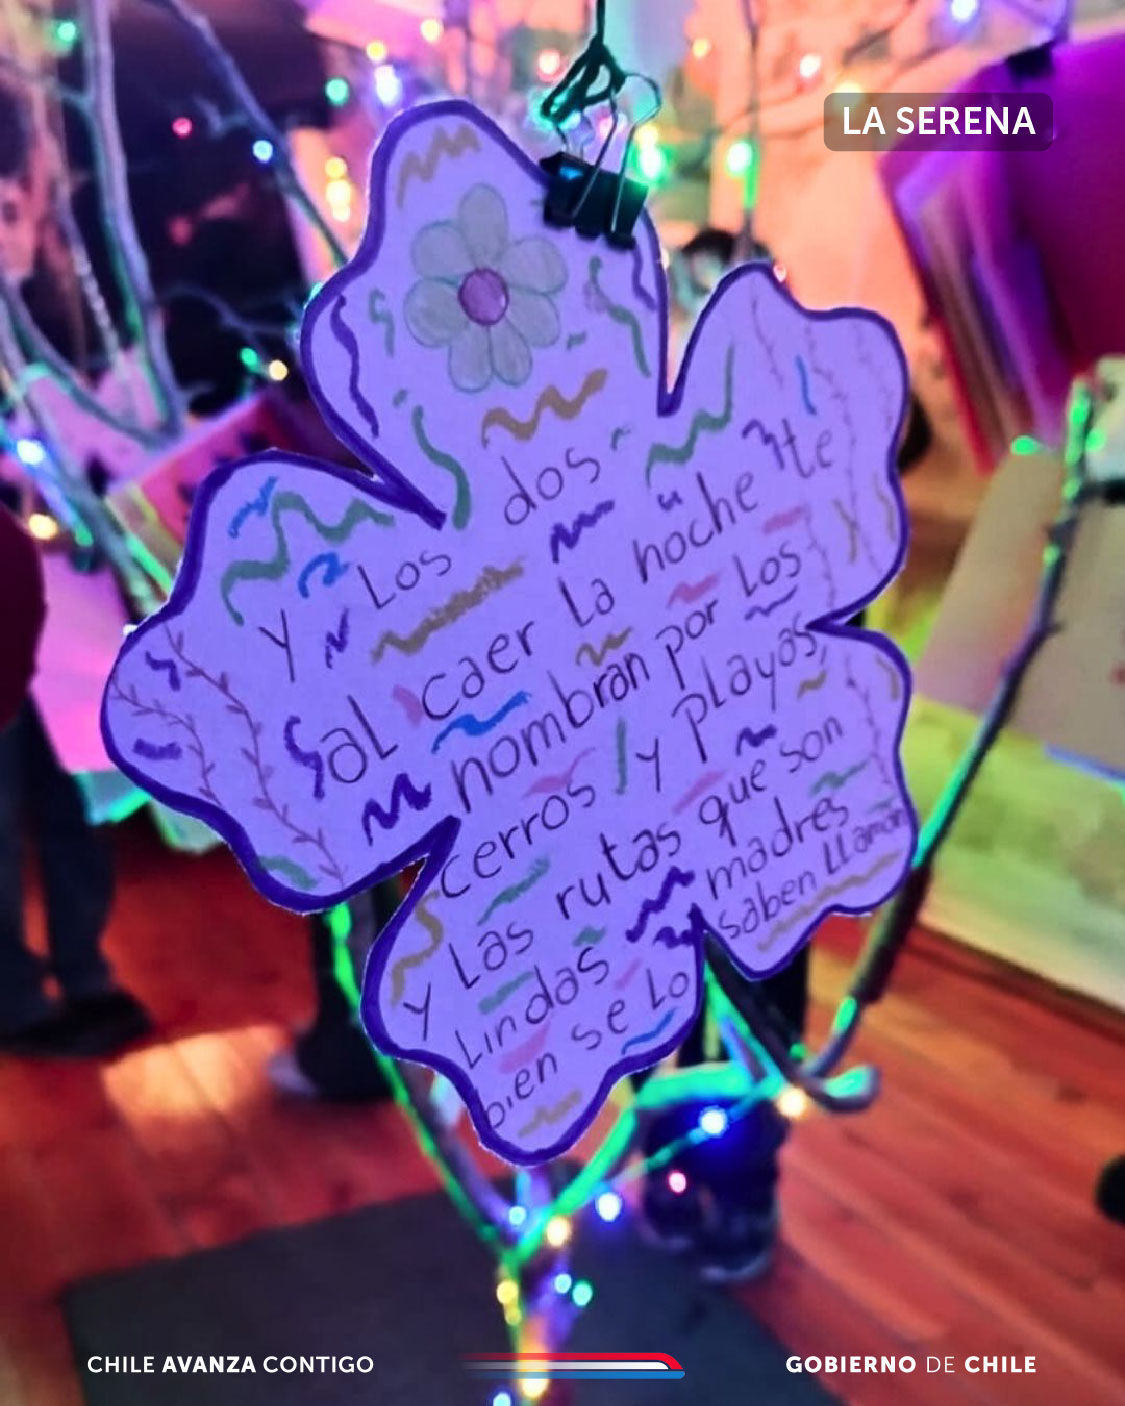 LA SERENA
Y Los dos
al caer la noche te
nombran por los
cerros y playas,
y las rutas que son
Lindas madres
bien se lo saben LLaman
CHILE AVANZA CONTIGO
GOBIERNO DE CHILE